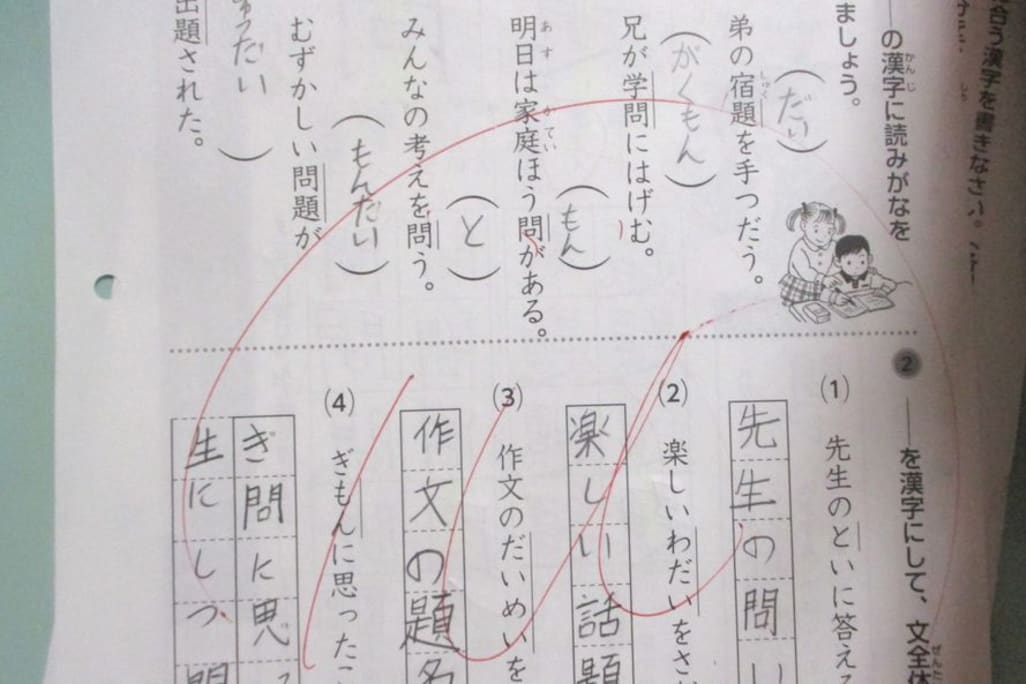 合う漢字を書きなさい。
の漢字に読みがなを
かんじ
ましょう。
(だい)
弟の宿題を手つだう。
しゅく
(がくもん)
兄が学問にはげむ。
(もん)
明日は家庭ほう問がある。
あす
かてい
(と)
みんなの考えを問う。
(もんだい)
むずかしい問題が
だい)
出題された。
②
を漢字にして、文全体
ぜんた
(1) 先生のといに答える
先生の問い
(2) 楽しいわだいをさ
楽しい話題
(3) 作文のだいめいを
作文の題名
(4) ぎもんに思ったこ
ぎ問に思
生にしつ問